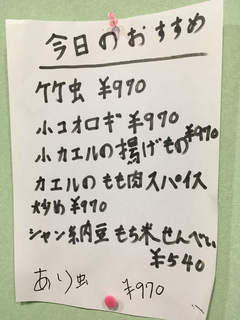 今日のおすすめ
竹虫 ¥970
小コオロギ ¥970
小カエルの揚げもの ¥970
カエルのもも肉スパイス
炒め ¥970
シャン納豆もち米せんべい
¥540
あり虫 ¥970